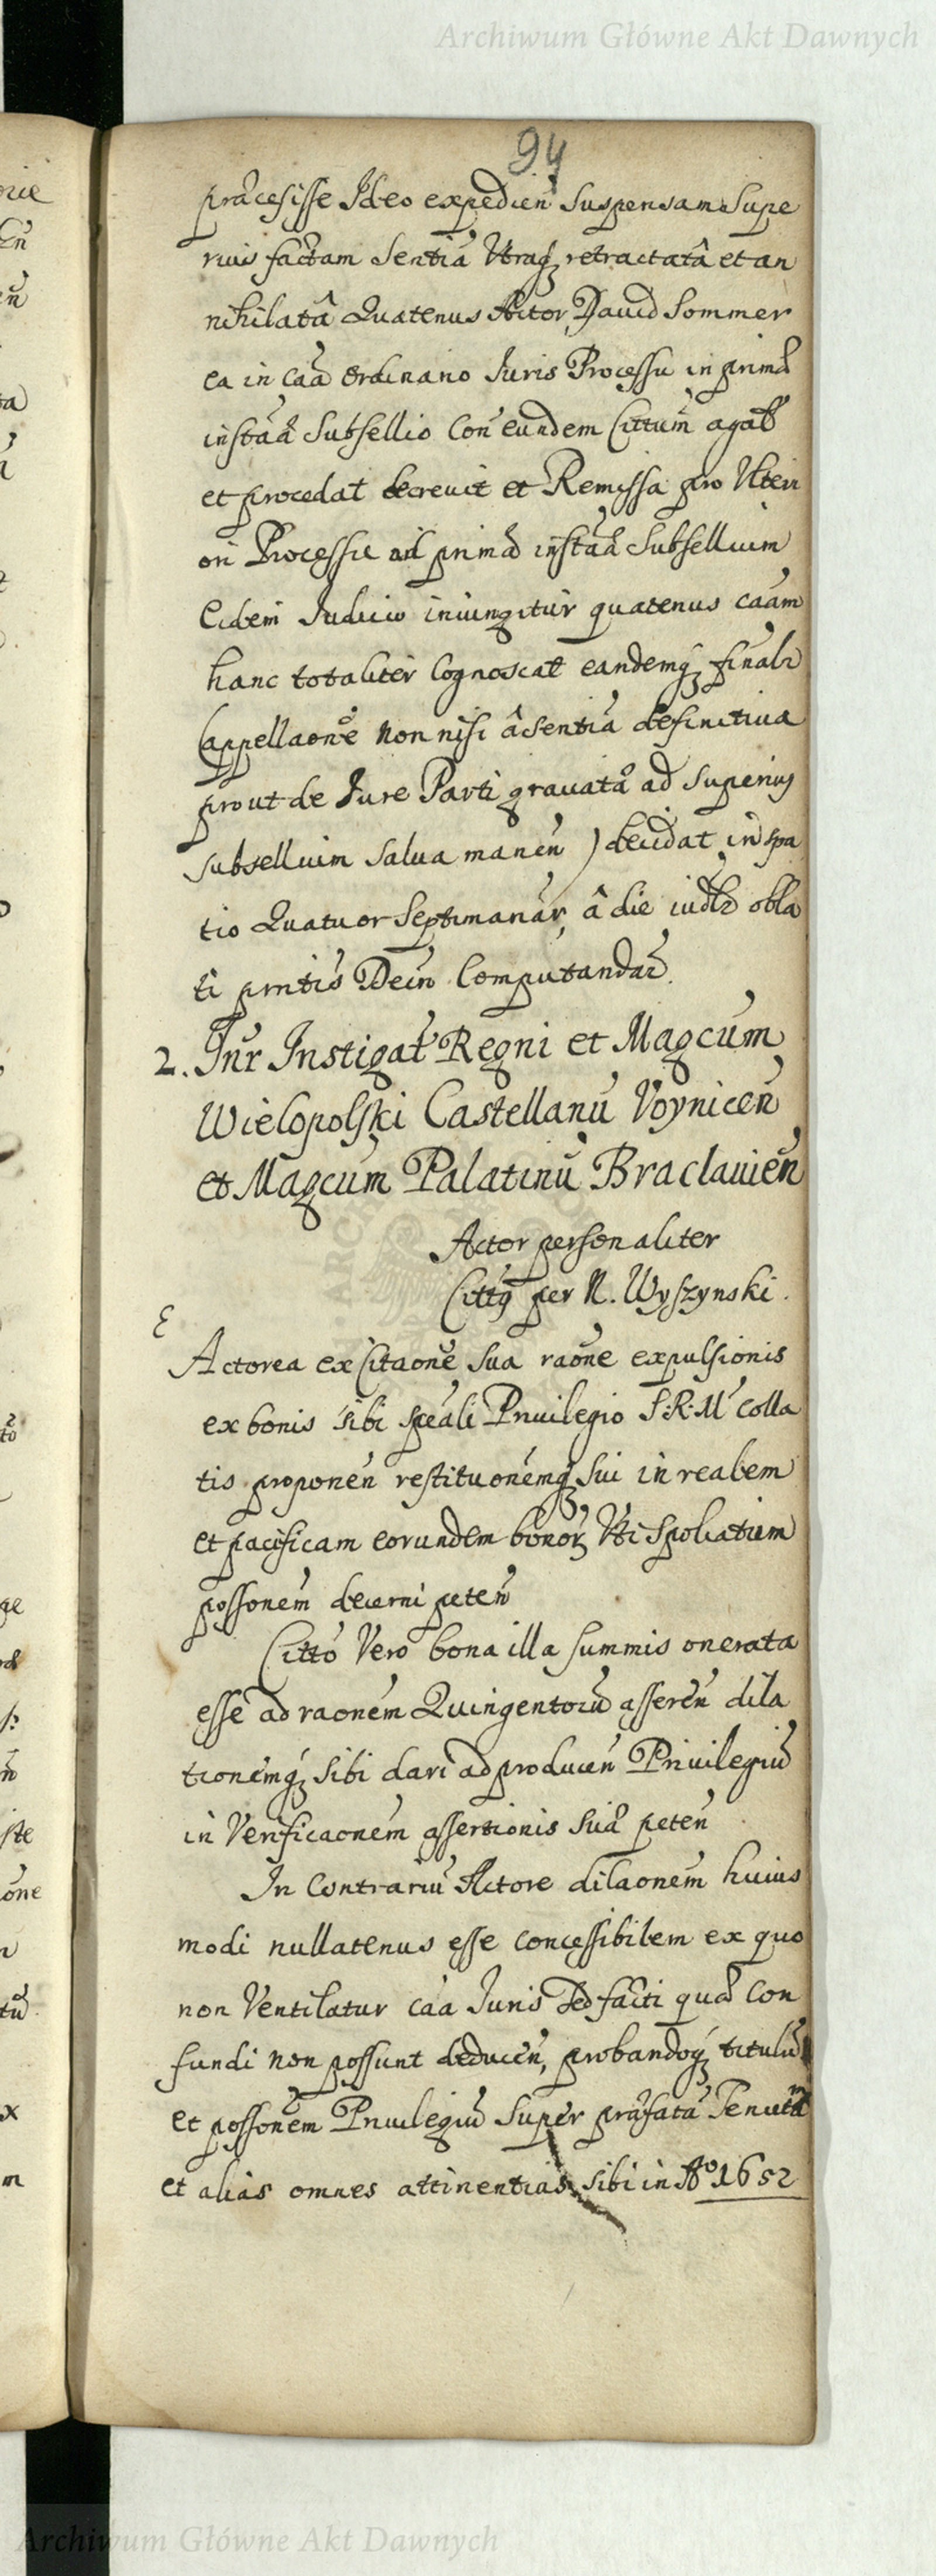 Archiwum Główne Akt Dawnych
94
præcesisse Ideo expedień suspensam supe
rius factam Sentiã Utraq retractatâ et an
nihilatâ Quatenus Actor David Sommer
ea in caã ordinario Iuris Processu in primæ
instãæ Subsellio Coñ eundem Cittum agat
et procedat decrevit et Remissa pro Ulteri
ori Processu ad primæ instãæ Subsellium
Eidem Iudicio iniungitur quatenus caãm
hanc totaliter Cognoscat eandemq finalr
(appellaone non nisi â sentiã definitiva
prout de Iure Parti gravatæ ad Superius
subsellium salva maneñ) decidat in spa
tio Quatuor Septimanar, â die iudlr obla
ti pñtis Decrii Computandar.
2. Inr Instigat Regni et Magcum
Wielopolski Castellanũ Voyniceñ
et Magcum Palatinũ Braclavieñ
Actor personaliter
Cittq per N. Wyszynski.
Actorea ex Citaone sua raone expulsionis
ex bonis sibi speali Privilegio S.R.M Colla
tis proponeñ restituonemq sui in realem
et pacificam eorundem bonor Uti spoliatum
possonem decerni peteñ
Citto Vero bona illa summis onerata
esse ad raonem Quingentorũ assereñ dila
tionemq sibi dari ad produceñ Privilegiũ
in Verificaonem assertionis suæ peteñ
In Contrariũ Actore dilaonem huius
modi nullatenus esse concessibilem ex quo
non Ventilatur caã Iuris sed facti quæ Con
fundi non possunt deduceñ, probandoq titulũ
et possonem Privilegiũ super præfatã Tenutam
et alias omnes attinentias sibi in Aº 1652
Archiwum Główne Akt Dawnych